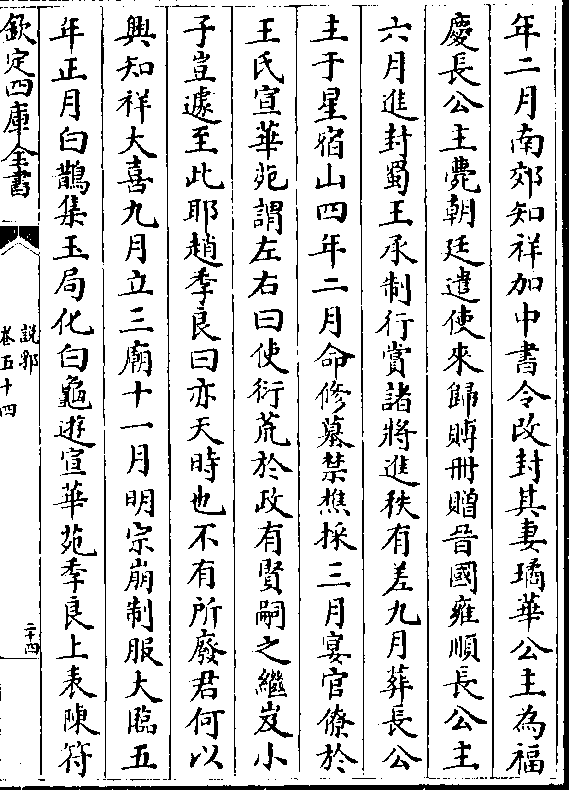 年二月南郊知祥加中書令改封其妻璚華公主為福
慶長公主薨朝廷遣使來歸賻冊贈晉國雍順長公主
六月進封蜀王承制行賞諸將進秩有差九月葬長公
主于星宿山四年二月命修墓禁樵採三月宴官僚於
王氏宣華苑謂左右曰使衍荒於政有賢嗣之繼豈小
子豈遽至此耶趙季良曰亦天時也不有所廢君何以
興知祥大喜九月立三廟十一月明宗崩制服大臨五
年正月白鵲集玉局化白龜遊宣華苑季良上表陳符
欽定四庫全書
說郛
卷五十四
二十四